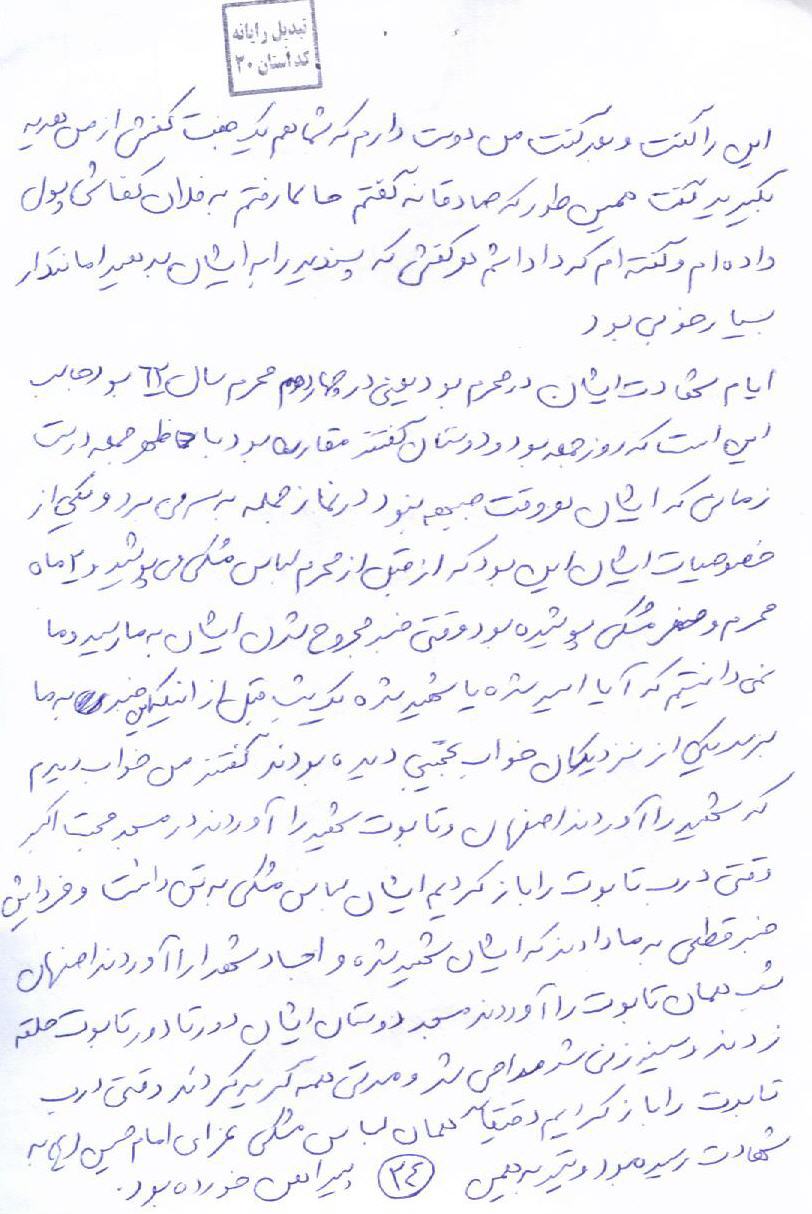 تبدیل رایانه
کد استان ۳۰
این را گفت و بعد گفت من دوست دارم که شما هم یک جفت کفش از من هدیه
بگیرید گفت همین طور که صادقانه گفتم حالا رفتم به فلان کفاشی پول
داده ام و گفته ام که داداشم هر کفشی که پسندید را به ایشان بدهید امانتدار
بسیار خوبی بود
ایام شهادت ایشان در محرم بود یعنی در چهاردهم محرم سال ۶۲ بود جالب
این است که روز جمعه بود و دوستان گفتند مقارن بود با ظهر جمعه درست
زمانی که ایشان هر وقت جبهه نبود در نماز جمعه به سر می برد و یکی از
خصوصیات ایشان این بود که از قبل از محرم لباس مشکی می پوشید و ۲ ماه
محرم و صفر مشکی پوشیده بود وقتی خبر مجروح شدن ایشان به ما رسید و ما
نمی دانستیم که آیا اسیر شده یا شهید شده یک شب قبل از اینکه این خبر به ما
برسد یکی از نزدیکان خواب عجیبی دیده بودند گفتند من خواب دیدم
که شهید را آوردند اصفهان و تابوت شهید را آوردند در مسجد محبت اکبر
وقتی درب تابوت را باز کردیم ایشان لباس مشکی به تن داشت و فردایش
خبر قطعی به ما دادند که ایشان شهید شده و اجساد شهدا را آوردند اصفهان
شب همان تابوت را آوردند مسجد دوستان ایشان دور تا دور تابوت حلقه
زدند و سینه زنی شد مداحی شد و مدتی همه گریه کردند وقتی درب
تابوت را باز کردیم دقیقا همان لباس مشکی عزای امام حسین (ع) به
شهادت رسیده بود و تیر به همین پیراهن خورده بود.
۳۴